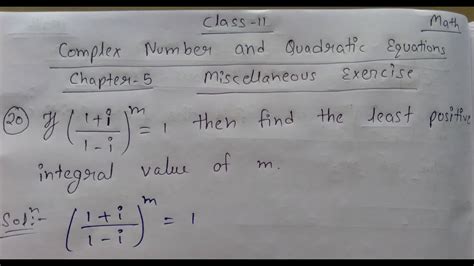 Class-11 Math
Complex Number and Quadratic Equations
Chapter-5 Miscellaneous Exercise
(20) If ((1+i)/(1-i))^m = 1 then find the least positive
integral value of m.
Solⁿ:- ((1+i)/(1-i))^m = 1